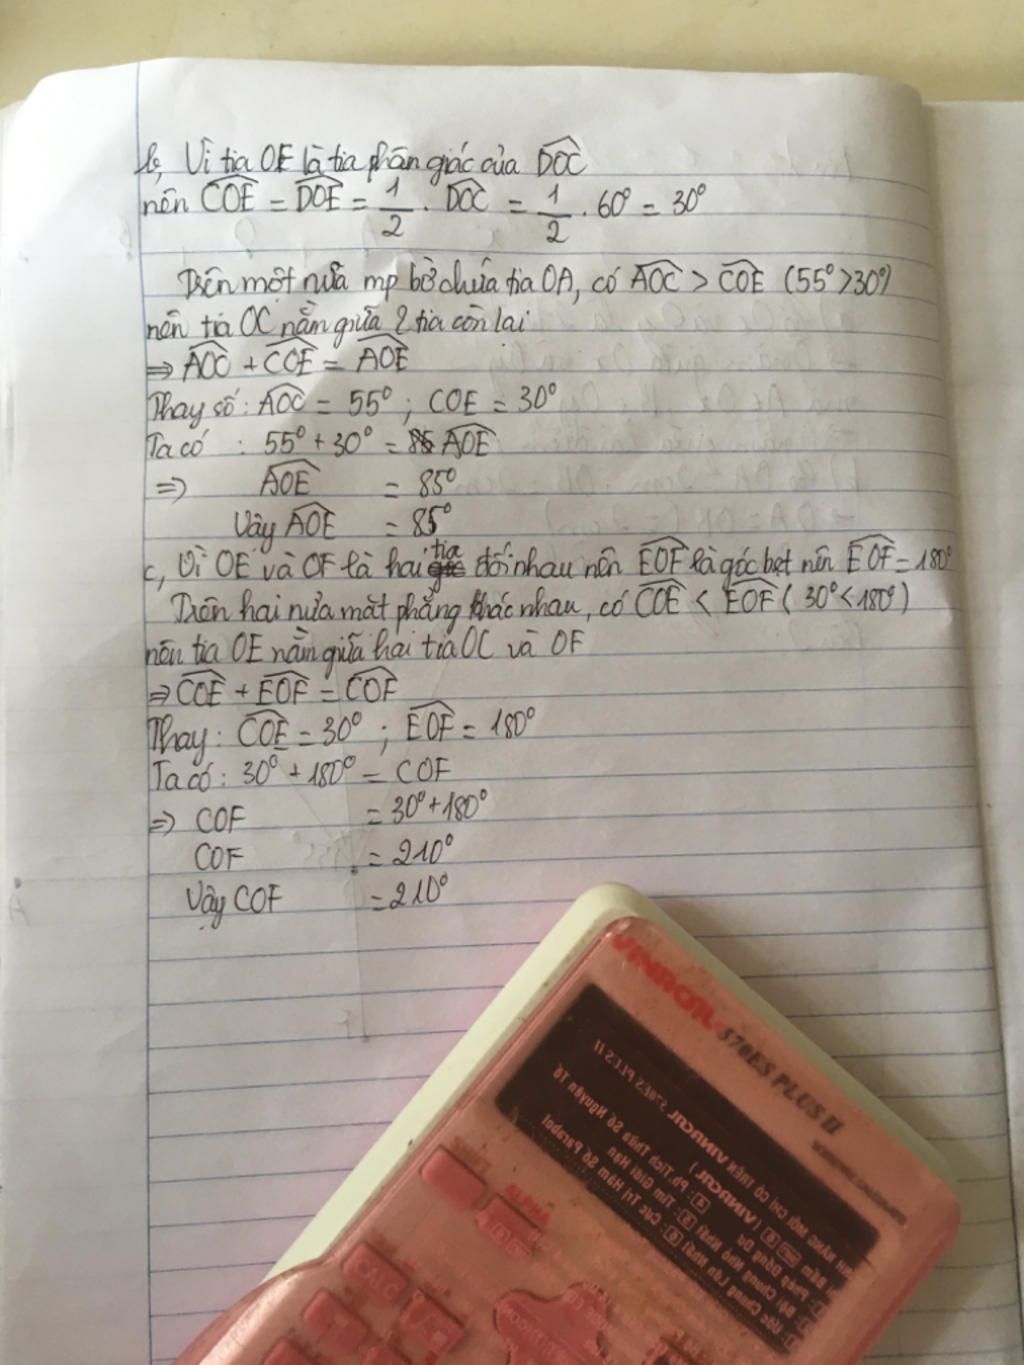 b, Vì tia OE là tia phân giác của DOC
nên COE = DOE = 1/2 . DOC = 1/2 . 60° = 30°
Trên một nửa mp bờ chứa tia OA, có AOC > COE (55° > 30°)
nên tia OC nằm giữa 2 tia còn lại
⇒ AOC + COE = AOE
Thay số: AOC = 55° ; COE = 30°
Ta có : 55° + 30° = AOE
⇒ AOE = 85°
Vậy AOE = 85°
c, Vì OE và OF là hai tia đối nhau nên EOF là góc bẹt nên EOF = 180°
Trên hai nửa mặt phẳng khác nhau, có COE < EOF ( 30° < 180°)
nên tia OE nằm giữa hai tia OC và OF
⇒ COE + EOF = COF
Thay: COE = 30° ; EOF = 180°
Ta có: 30° + 180° = COF
⇒ COF = 30° + 180°
COF = 210°
Vậy COF = 210°
VINACAL 570ES PLUS II
SHIFT
ALPHA
CALC